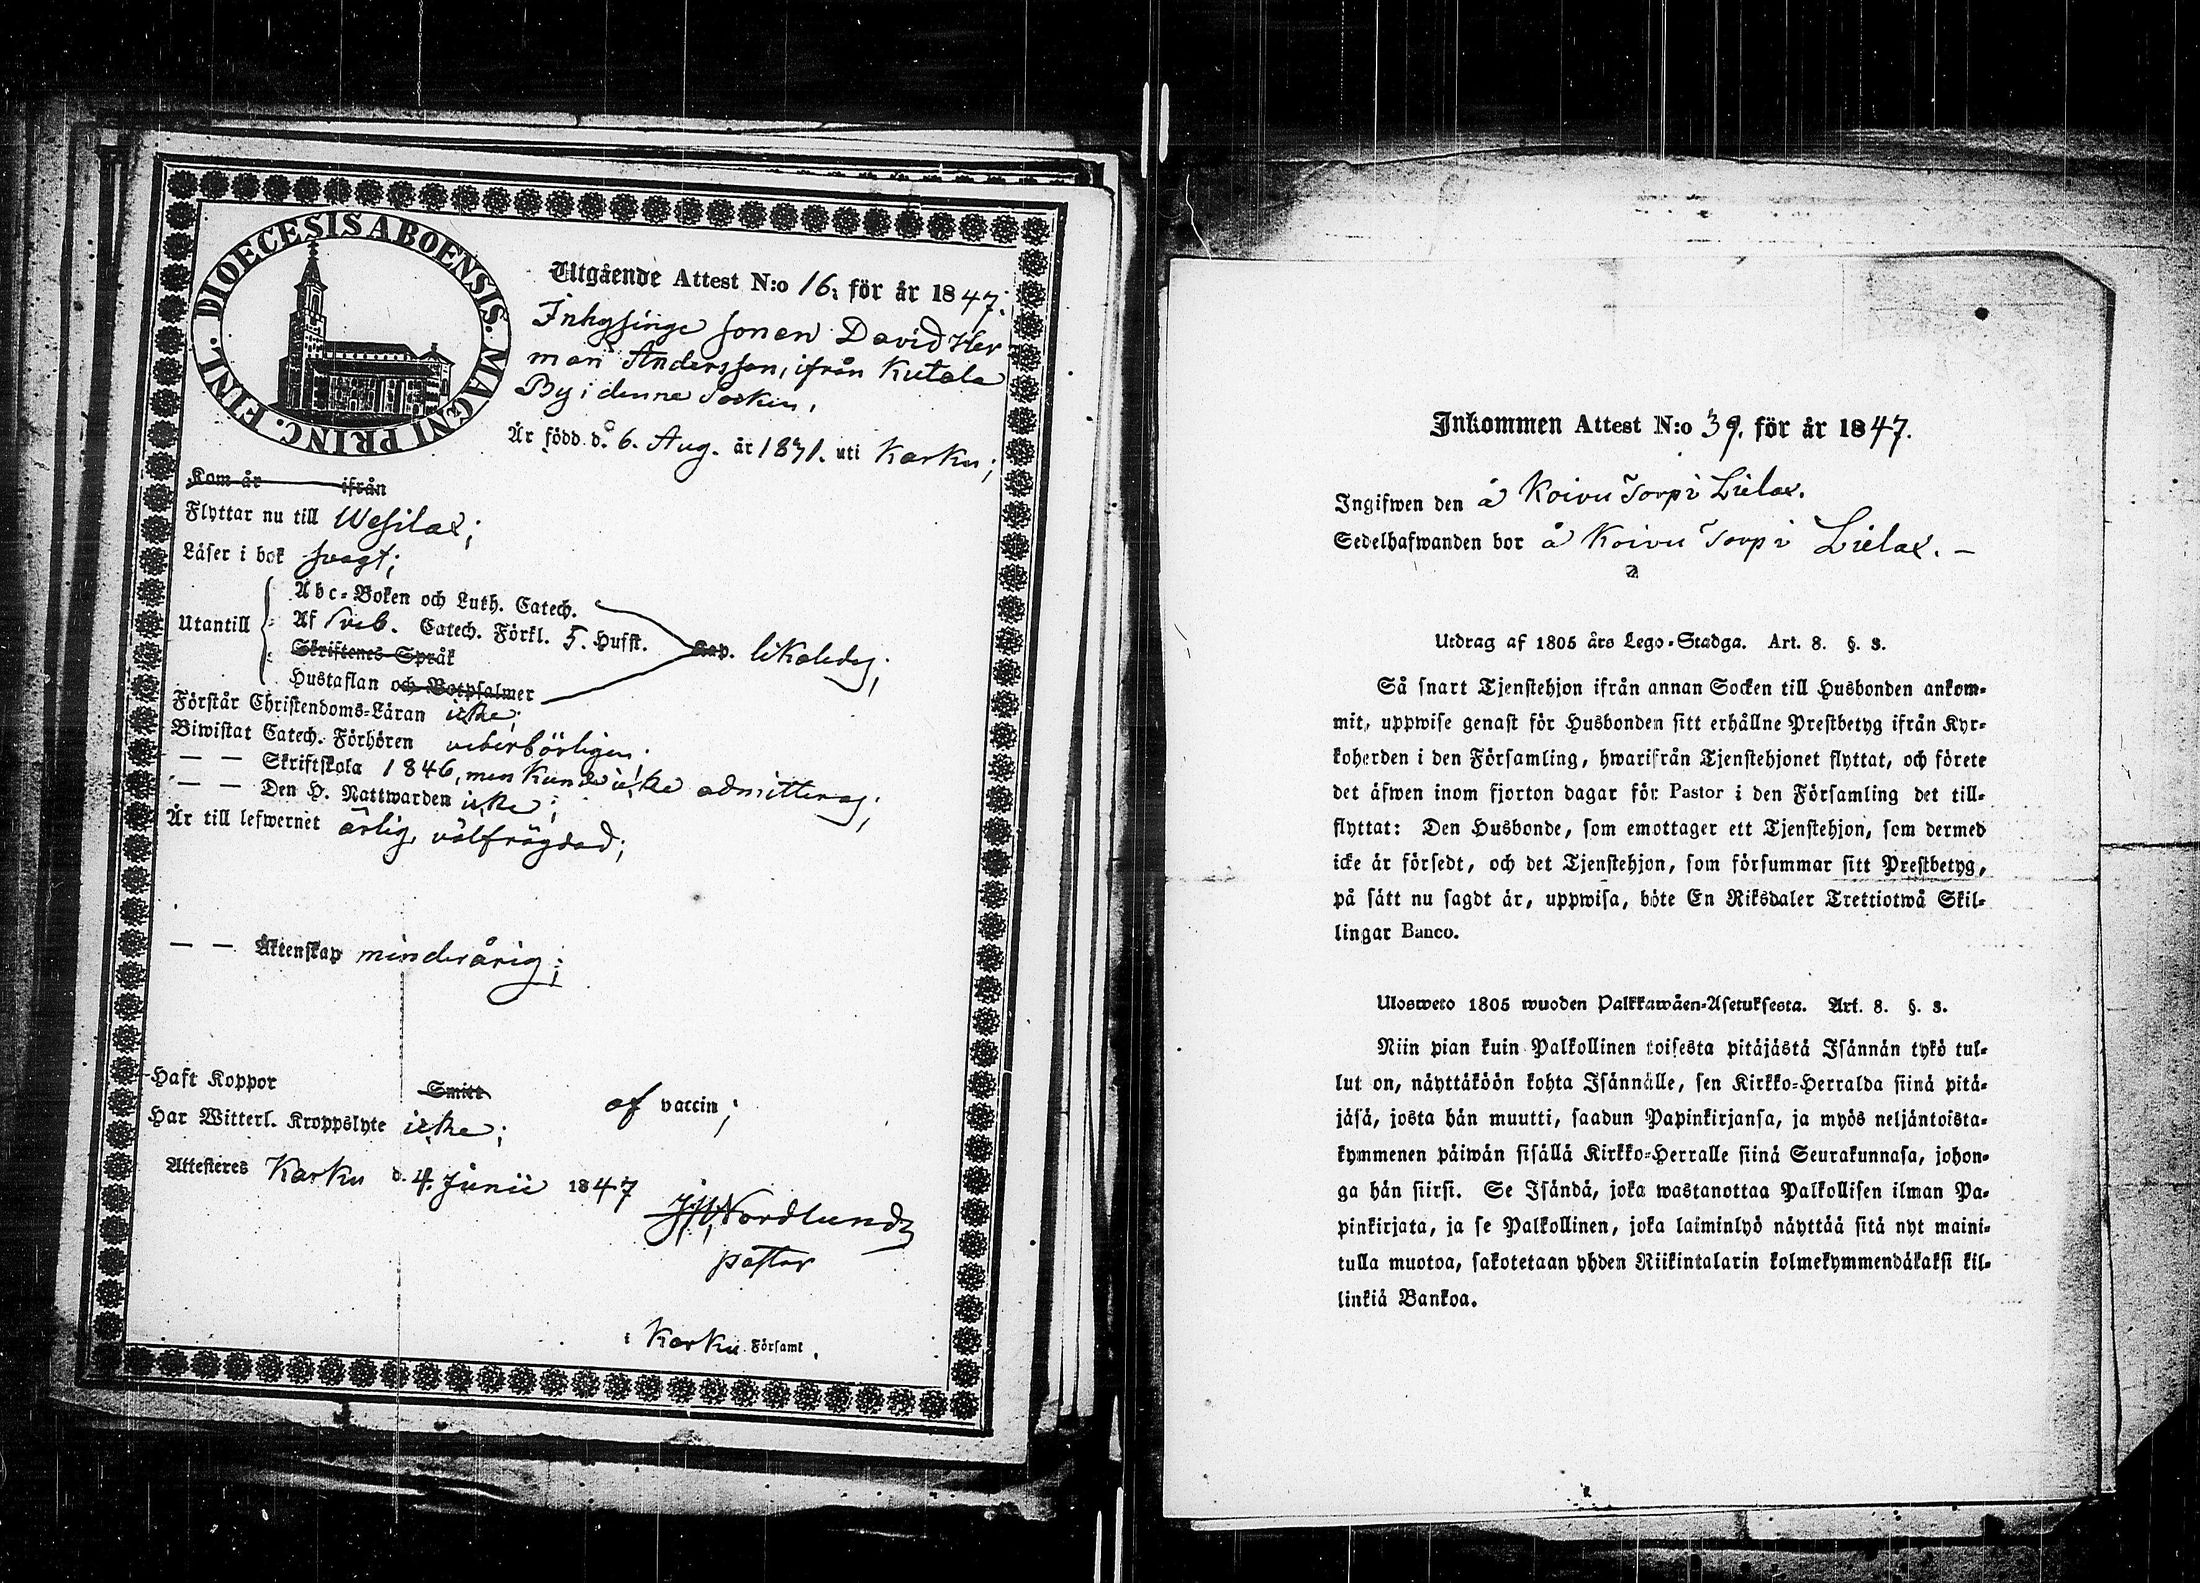 DIOECESIS ABOENSIS. MAGNI PRINC. FINL.
Utgående Attest N:o 16. för år 1847.
Inhysinge sonen David Her
man Andersson, ifrån Kutala
By i denne Socken,
Är född d. 6. Aug. år 1831. uti Karku;
Kom år ifrån
Flyttar nu till Wesilax;
Läser i bok svagt;
Utantill
Abc-Boken och Luth. Catech.
Af Sveb. Catech. Förkl. 5. Hufst.
Skriftenes Språk
Hustaflan och Botpsalmer
Kap. likaledes;
Förstår Christendoms-Läran icke;
Biwistat Catech. Förhören vederbörligen;
— — Skriftskola 1846, men kunde icke admitteras;
— — Den H. Nattwarden icke;
Är till lefwernet ärlig, välfrägdad;
— — Äktenskap minderårig;
Haft Koppor Smitt af vaccin;
Har Witterl. Kroppslyte icke;
Attesteres Karku d. 4. Junii 1847
Nordlund
pastor
i Karku Församl.
Inkommen Attest N:o 39. för år 1847.
Ingifwen den å Koivu Torp i Lielax.
Sedelhafwanden bor å Koivu Torp i Lielax. —
Utdrag af 1805 års Lego-Stadga. Art. 8. §. 3.
Så snart Tjenstehjon ifrån annan Socken till Husbonden ankom-
mit, uppwise genast för Husbonden sitt erhållne Prestbetyg ifrån Kyr-
koherden i den Församling, hwarifrån Tjenstehjonet flyttat, och förete
det äfwen inom fjorton dagar för Pastor i den Församling det till-
flyttat: Den Husbonde, som emottager ett Tjenstehjon, som dermed
icke är försedt, och det Tjenstehjon, som försummar sitt Prestbetyg,
på sätt nu sagdt är, uppwisa, böte En Riksdaler Trettiotwå Skil-
lingar Banco.
Ulosweto 1805 wuoden Palkkawäen-Asetuksesta. Art. 8. §. 3.
Niin pian kuin Palkollinen toisesta pitäjästä Isännän tykö tul-
lut on, näyttäköön kohta Isännälle, sen Kirkko-Herralda siinä pitä-
jäsä, josta hän muutti, saadun Papinkirjansa, ja myös neljäntoista-
kymmenen päiwän sisällä Kirkko-Herralle siinä Seurakunnasa, johon-
ga hän siirsi. Se Isändä, joka wastanottaa Palkollisen ilman Pa-
pinkirjata, ja se Palkollinen, joka laiminlyö näyttää sitä nyt maini-
tulla muotoa, sakotetaan yhden Riikintalarin kolmekymmendäkaksi kil-
linkiä Bankoa.